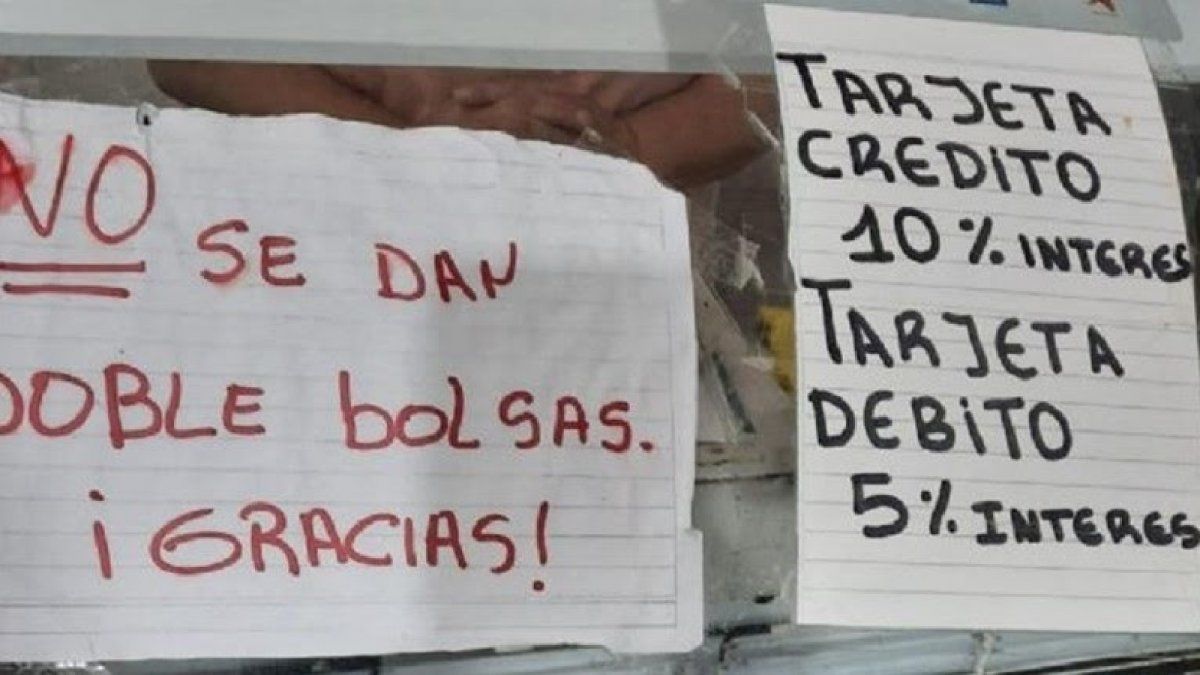 NO SE DAN
DOBLE bOLSAS.
¡GRACIAS!
TARJETA
CREDITO
10% INTERES
TARJETA
DEBiTO
5% INTERES